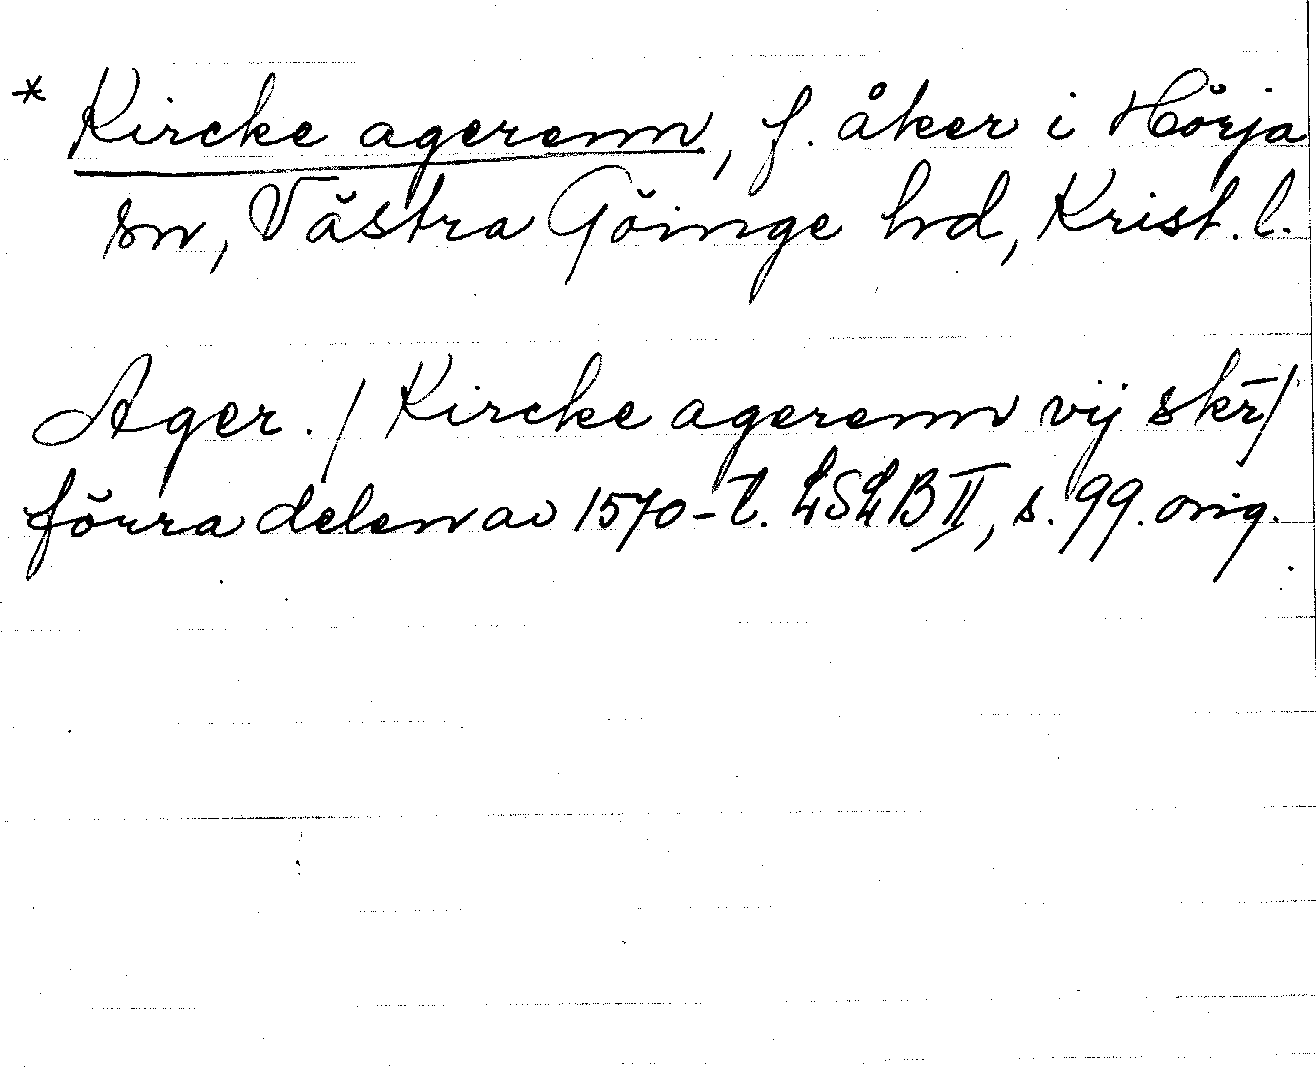 * Kircke agerenn, f. åker i Hörja
sn, Västra Göinge hd, Krist. l.
Ager. / Kircke agerenn vij skr̄/
förra delen av 1570-t. LSLB II, s. 99. orig.